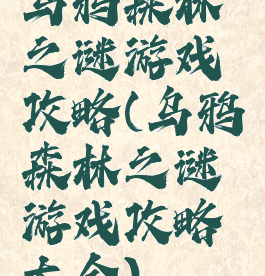 乌鸦森林
之谜游戏
攻略(乌鸦
森林之谜
游戏攻略
大全)